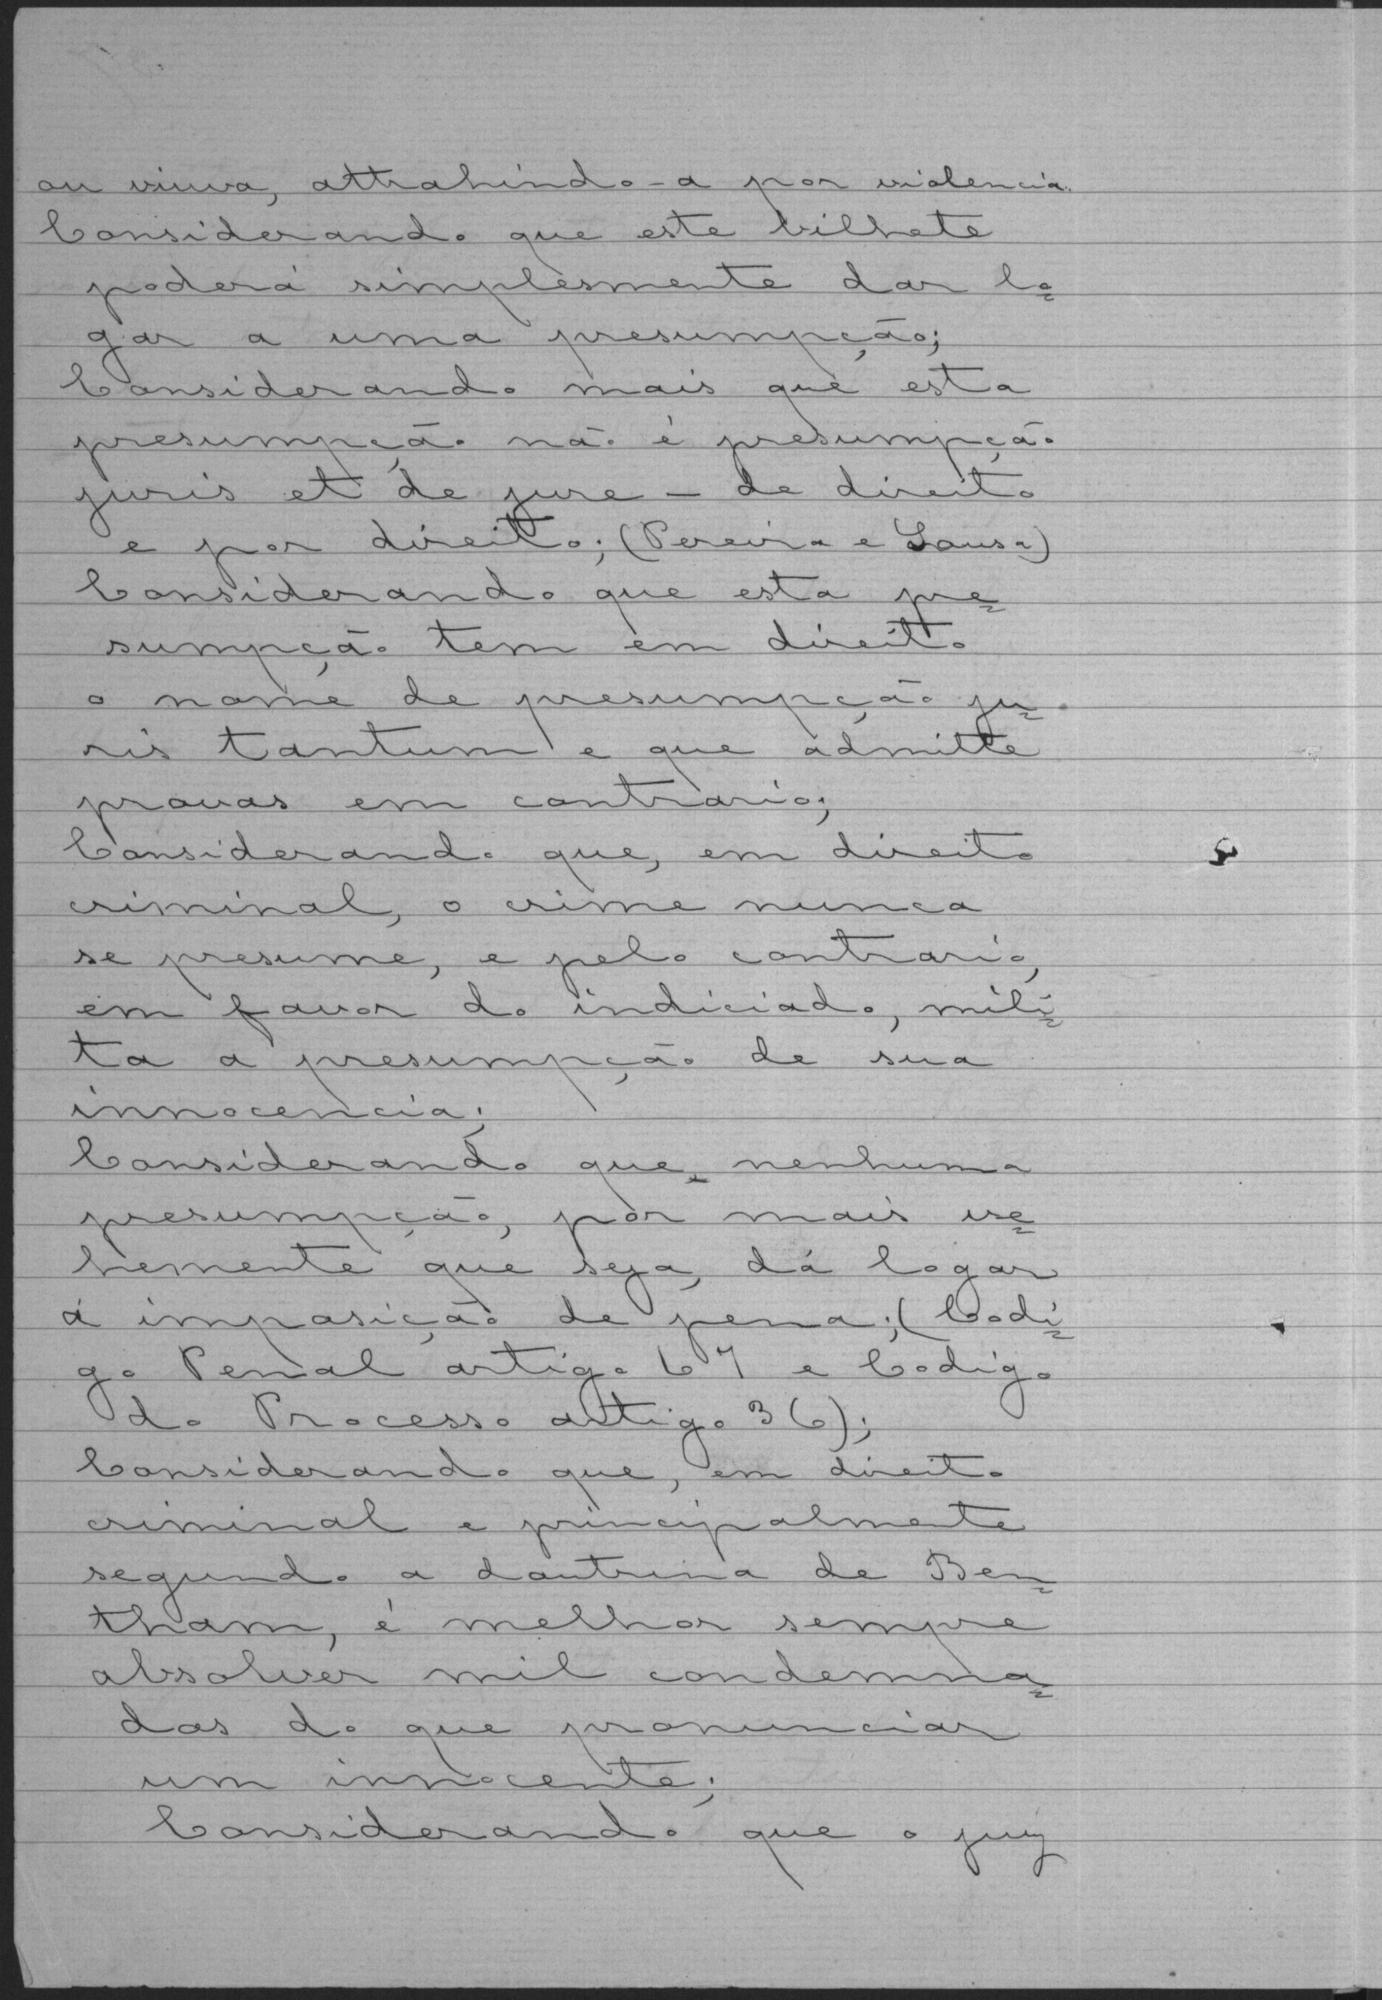 ou viuva, attrahindo-a por violencia.
Considerando que este bilhete
poderá simplesmente dar lo=
gar a uma presumpção;
Considerando mais que esta
presumpção não é presumpção
juris et de jure - de direito
e por direito; (Pereira e Sousa)
Considerando que esta pre=
sumpção tem em direito
o nome de presumpção ju=
ris tantum e que admitte
provas em contrario;
Considerando que, em direito
criminal, o crime nunca
se presume, e pelo contrario,
em favor do indiciado, mili=
ta a presumpção de sua
innocencia;
Considerando que, nenhuma
presumpção, por mais ve=
hemente que seja, dá logar
á imposição de pena; (Codi=
go Penal artigo 67 e Codigo
do Processo artigo 36);
Considerando que, em direito
criminal e principalmente
segundo a doutrina de Ben=
tham, é melhor sempre
absolver mil condemna=
dos do que pronunciar
um innocente;
Considerando que o juiz